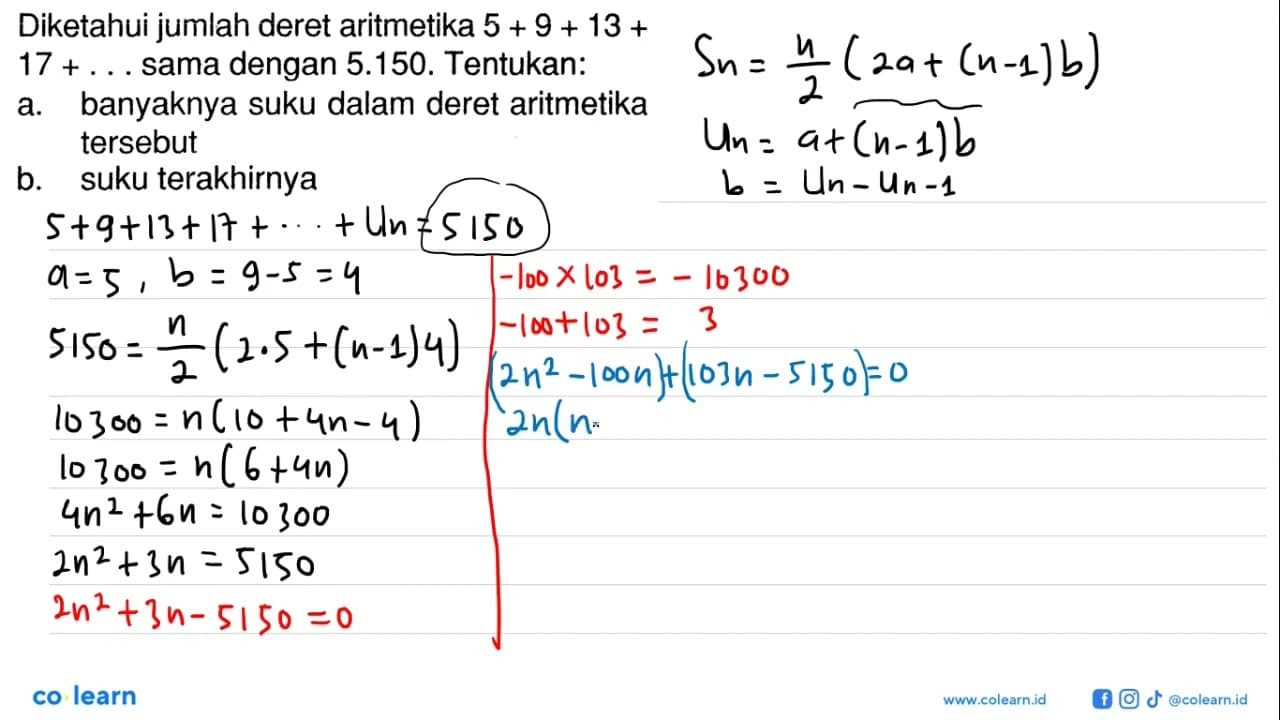 Diketahui jumlah deret aritmetika 5 + 9 + 13 +
17 + . . . sama dengan 5.150. Tentukan:
a. banyaknya suku dalam deret aritmetika
tersebut
b. suku terakhirnya
Sn = n/2 (2a + (n-1)b)
Un = a+(n-1)b
b = Un - Un-1
5+9+13+17+ ... + Un = 5150
a=5, b = 9-5 = 4
5150 = n/2 (2.5+(n-1)4)
10300 = n(10+4n-4)
10300 = n(6+4n)
4n²+6n = 10300
2n²+3n = 5150
2n²+3n-5150=0
-100 × 103 = -10300
-100+103 = 3
(2n²-100n)+(103n-5150)=0
2n(n
co learn
www.colearn.id
@colearn.id